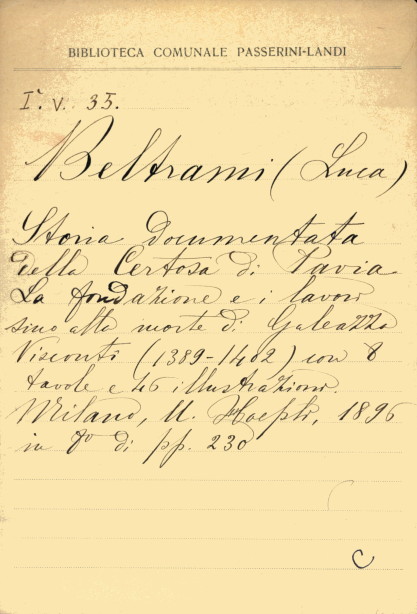 BIBLIOTECA COMUNALE PASSERINI-LANDI
Iª. V. 35.
Beltrami (Luca)
Storia documentata
della Certosa di Pavia
La fondazione e i lavori
sino alla morte di Galeazzo
Visconti (1389-1402) con 8
tavole e 46 illustrazioni.
Milano, U. Hoepli, 1896
in 8º di pp. 230
C